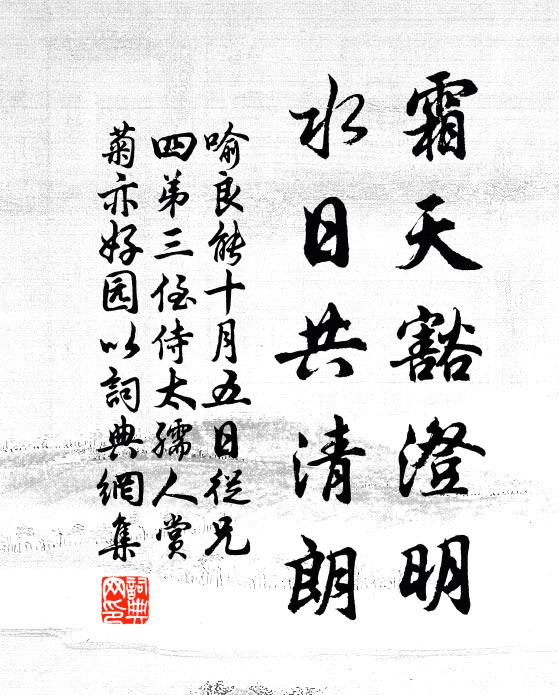 霜天豁澄明
水日共清朗
喻良能十月五日從兄
四弟三侄侍太孺人賞
菊亦好园以詞典網集
詞典网印